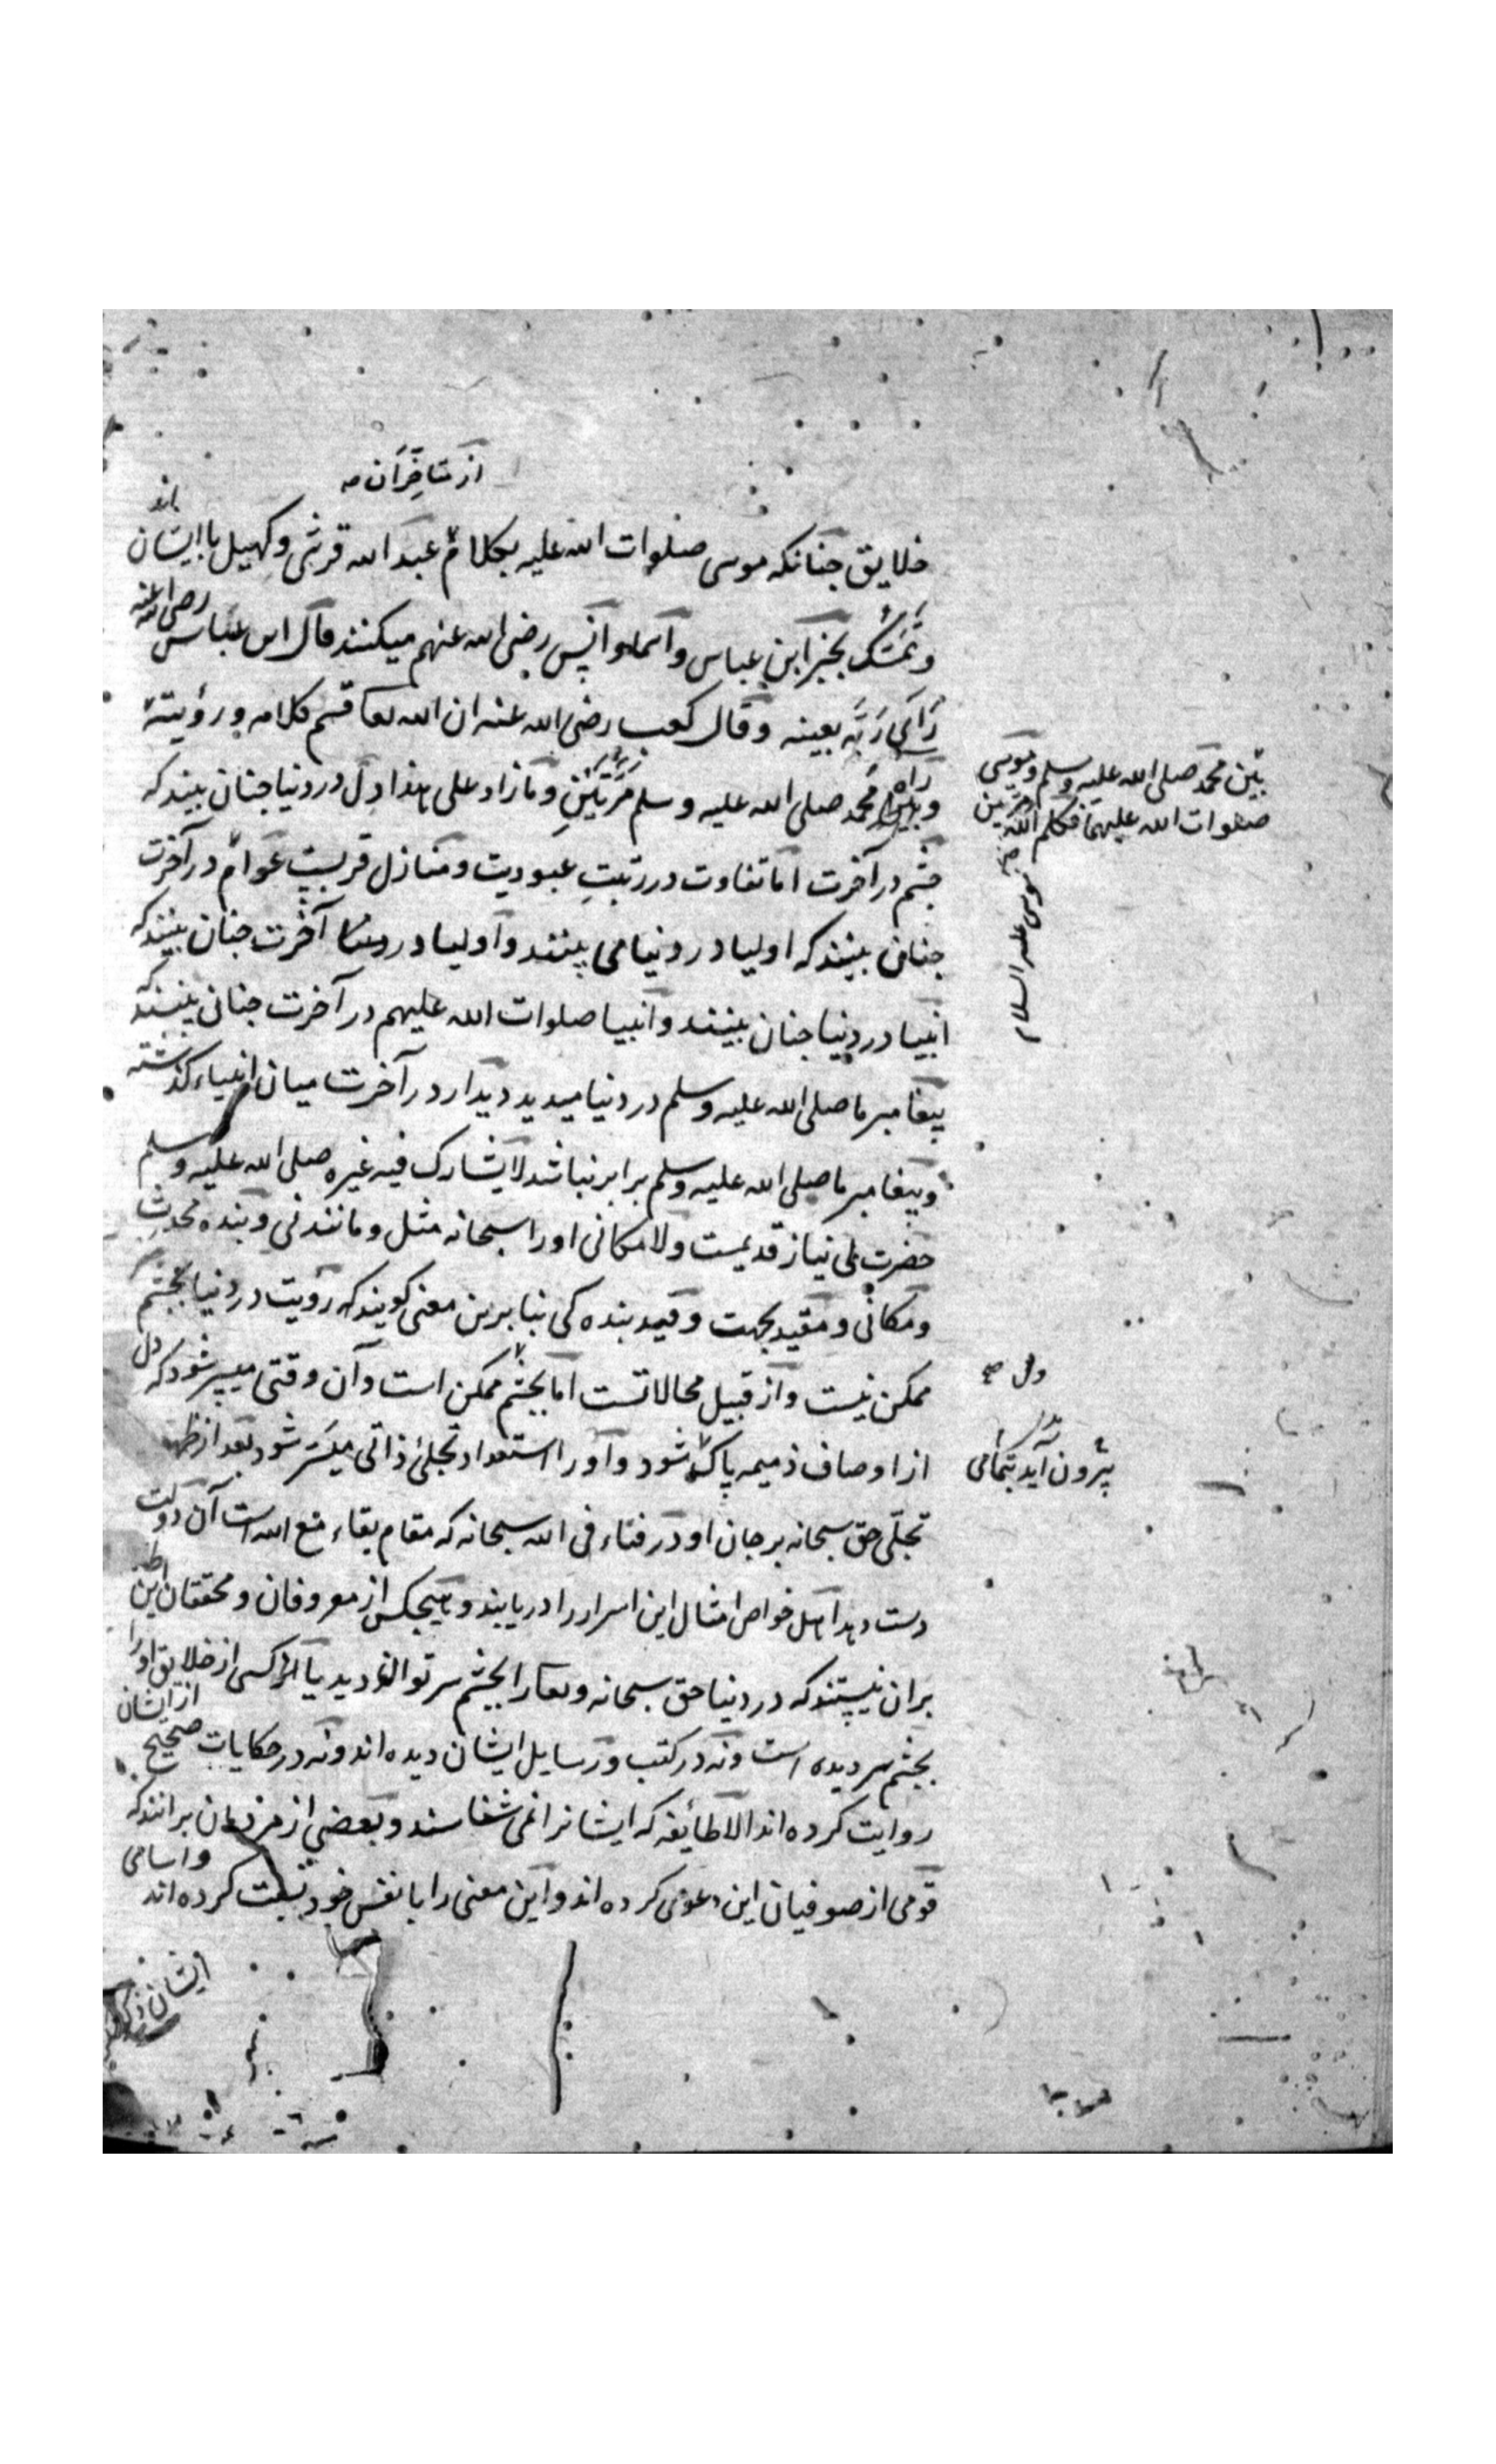 از متاخران صه
خلایق چنانکه موسی صلوات الله علیه بکلام عبد الله قرشی و کهیل با ایشان اند
و تمسّک بخبر ابن عباس و اسما و انس رضی الله عنهم میکنند قال ابن عباس رضی الله عنه
رَاَی رَبَّه بعینه و قال کعب رضی الله عنه ان الله تعا قسم کلامه و رؤیته
راه محمد صلی الله علیه و سلم مَرَّتَیْنِ و مازاد علی هذا دل در دنیا چنان بیند که
چشم در آخرت اما تفاوت در رتبتِ عبودیت و منازل قربیت عوام در آخرت
چنان بینند که اولیا در دنیا می بینند و اولیا در آخرت چنان بینند که
انبیا در دنیا چنان بینند و انبیا صلوات الله علیهم در آخرت چنان بینند که
پیغامبر ما صلی الله علیه و سلم در دنیا میدید دیدار در آخرت میان انبیاء کذشته
و پیغامبر ما صلی الله علیه و سلم برابر نباشد لا یشارک فیه غیره صلی الله علیه و سلم
حضرت بی نیاز قدیمست و لامکانی او را سبحانه مثل و مانند نی و بنده محدث
و مکانی و مقید بجهت و قید بنده کی بنابرین معنی کویند که رؤیت در دنیا بچشم
ممکن نیست و از قبیل محالاتست اما بچشم ممکن است و آن وقتی میسر شود که دل
از اوصاف ذمیمه پاک شود و او را استعداد تجلئ ذاتی میسّر شود بعد از ظهور
تجلّی حق سبحانه بر جان او در فناء فی الله سبحانه که مقام بقاء مع الله است آن دولت
دست دهد اهل خواص امثال این اسرار را دریابند و هیچکس از معروفان و محققان این طایفه
بران نیستند که در دنیا حق سبحانه و تعا را بچشم سر توان دید یا کسی از خلایق او را
بچشم سر دیده است و نه در کتب و رسایل ایشان دیده اند و نه در حکایات صحیح از ایشان
روایت کرده اند الا طائفه که ایشانرا نمی شناسند و بعضی از مردمان برانند که
قومی از صوفیان این دعوی کرده اند و این معنی را با نفس خود نسبت کرده اند و اسامی
ایشان
بین محمد صلی الله علیه و سلم و موسی
صلوات الله علیهما فکلم الله مرتین
موسی علیه السلام
دل صه
بیرون آید بتمامی